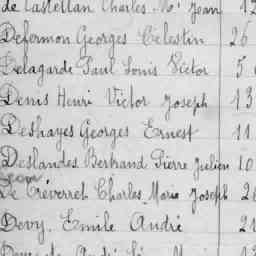 de Castellan Charles Mie Jean 12
Defermon Georges Célestin 26
Delagarde Paul Louis Victor 5
Denis Henri Victor Joseph 13
Deshayes Georges Ernest 11
Deslandes Bertrand Pierre Julien 10
Le Tréverret Charles Marie Joseph 26
Devy Emile André 21
André